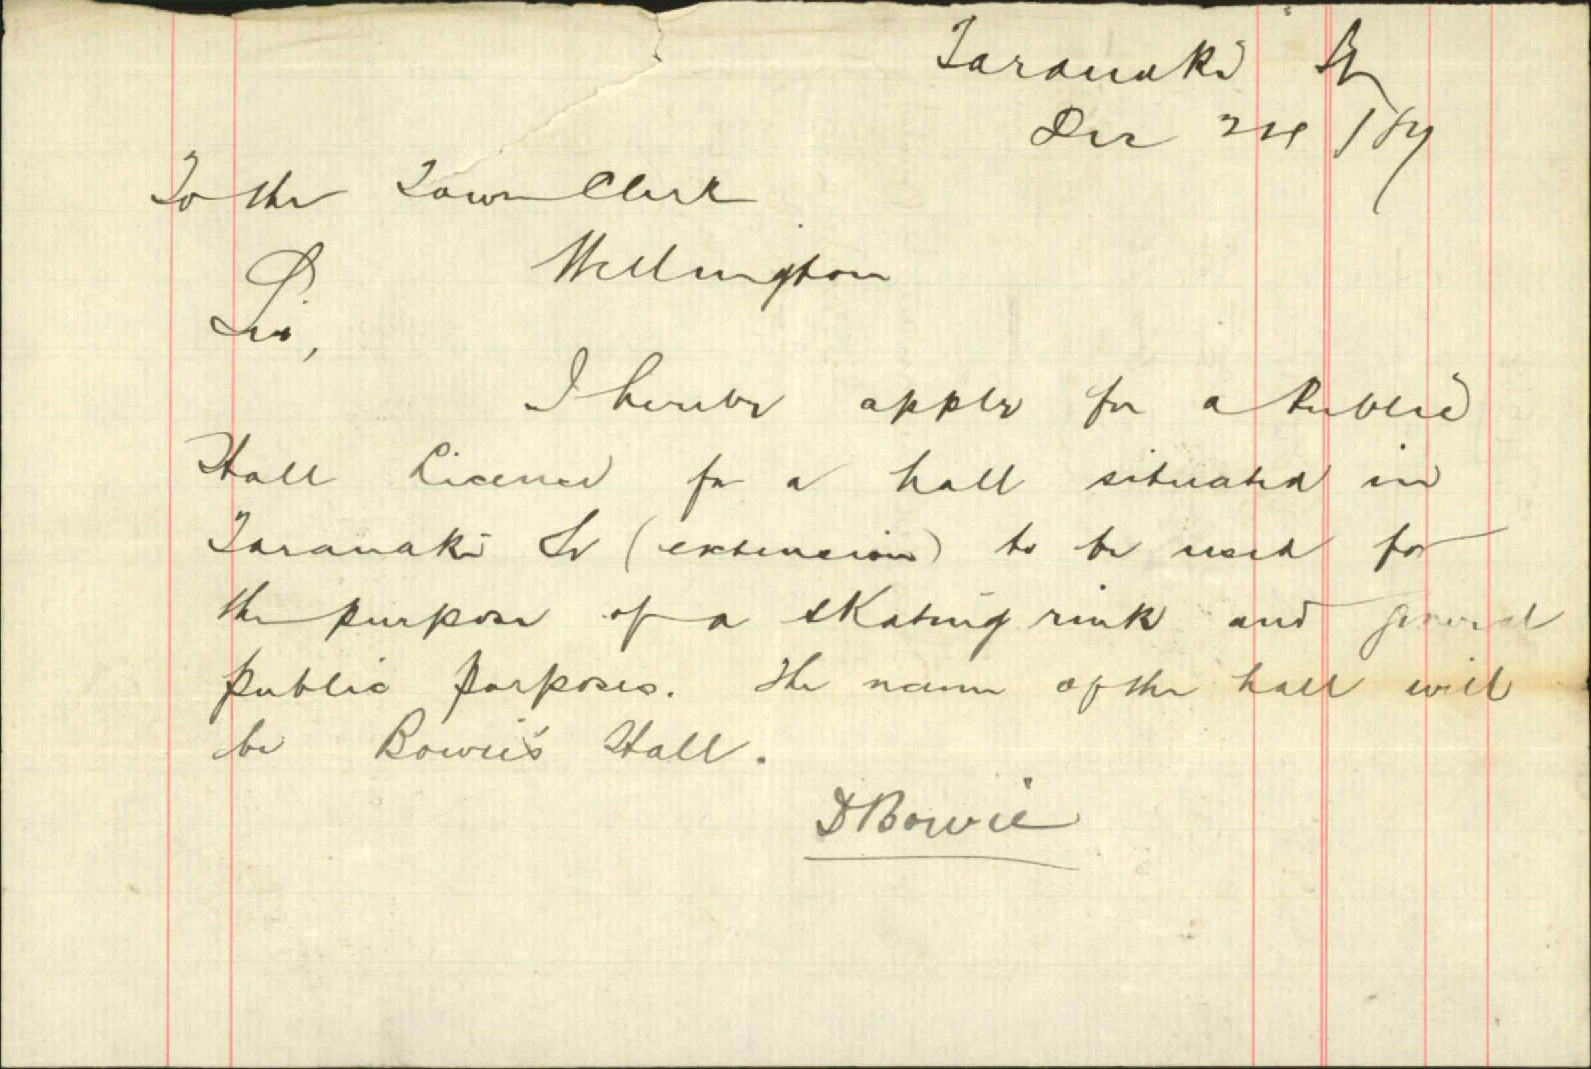 Taranaki St
Dec
To the Town Clerk
Wellington
Sir,
I hereby apply for a Public
Hall Licence for a hall situated in
Taranaki St (extension) to be used for
the purpose of a skating rink and general
public purposes. The name of the hall will
be Bowie's Hall.
D Bowie